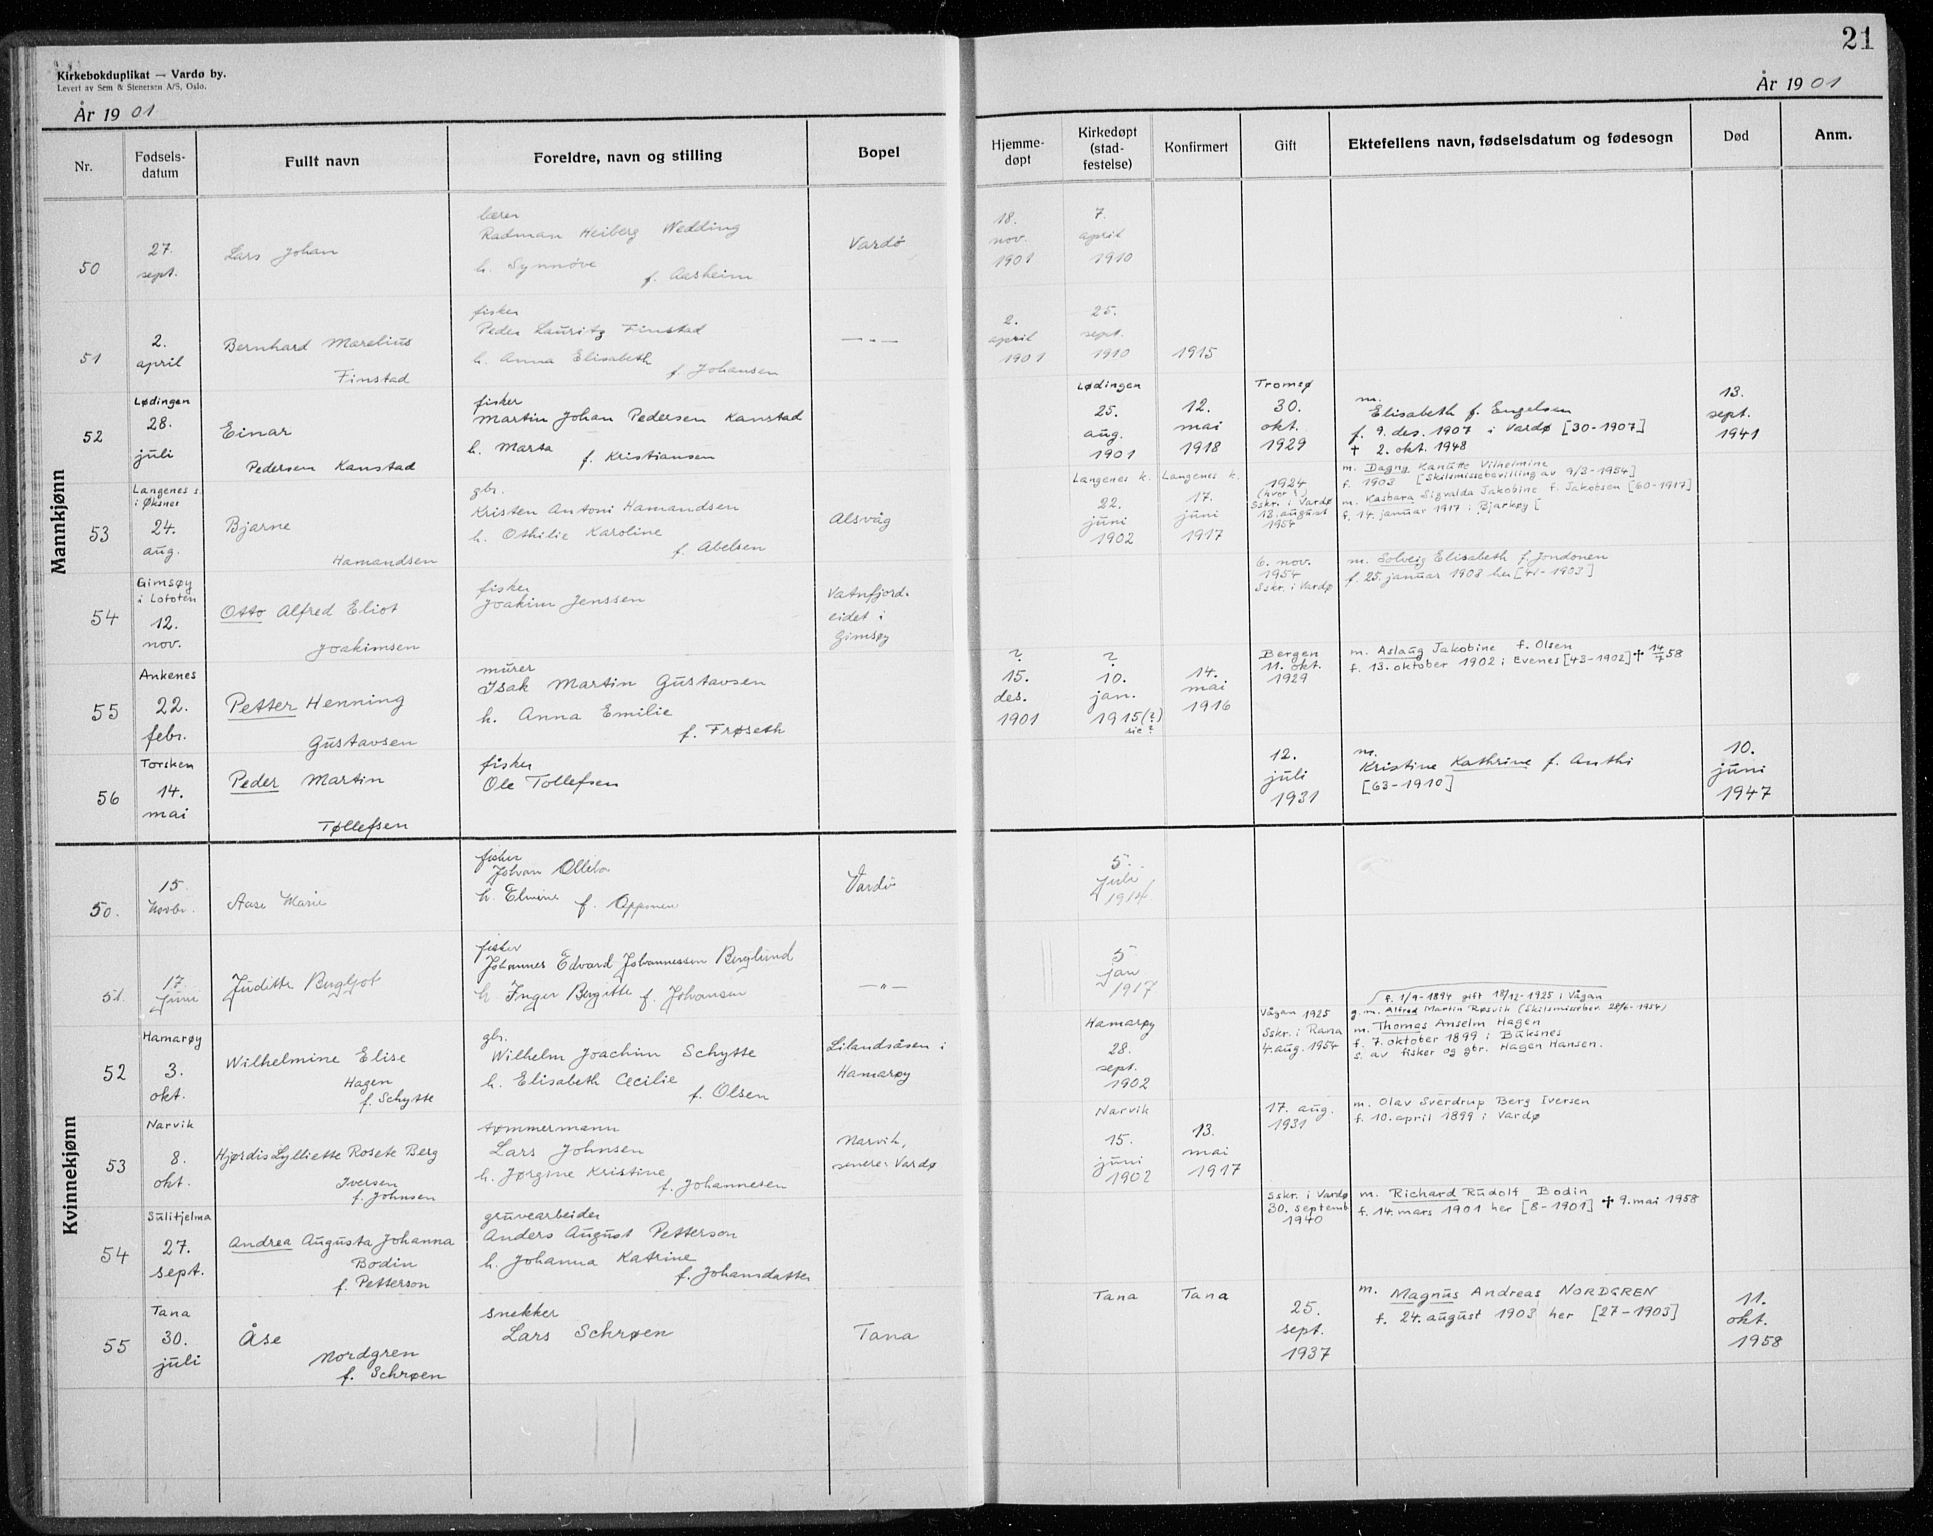 21
Kirkebokduplikat — Vardø by.
Levert av Sem & Stenersen A/S, Oslo.
År 1901
År 1901
Nr.
Fødsels-
datum
Fullt navn
Foreldre, navn og stilling
Bopel
Hjemme-
døpt
Kirkedøpt
(stad-
festelse)
Konfirmert
Gift
Ektefellens navn, fødselsdatum og fødesogn
Død
Anm.
Mannkjønn
50
27.
sept.
Lars Johan
lærer
Radman Heiberg Wedding
h. Synnöve
f. Aasheim
Vardö
18.
nov.
1901
7.
april
1910
51
2.
april
Bernhard Marelius
Finstad
fisker
Peder Lauritz Finstad
h. Anna Elisabeth
f. Johansen
—"—
2.
april
1901
25.
sept.
1910
1915
52
Lødingen
28.
juli
Einar
Pedersen Kanstad
fisker
Martin Johan Pedersen Kanstad
h. Marta f. Kristiansen
Lødingen
25.
aug.
1901
12.
mai
1918
Tromsø
30.
okt.
1929
m.
Elisabeth f. Engelsen
f. 9. des. 1907 i Vardø [30-1907]
† 2. okt. 1948
13.
sept.
1941
53
Langenes s.
i Øksnes
24.
aug.
Bjarne
Hamandsen
gbr.
Kristen Antoni Hamandsen
h. Othilie Karoline
f. Abelsen
Alsvåg
Langenes k.
22.
juni
1902
Langenes k.
17.
juni
1917
1924
(hvor?)
Sskr. i Vardø
12. august
1954
m. Dagny Kanutte Vilhelmine
f. 1903 [Skilsmissebevilling av 9/3-1954]
m. Kasbara Sigvalda Jakobine f. Jakobsen [60-1917]
f. 14. januar 1917 i Bjarkøy [
54
Gimsøy
i Lofoten
12.
nov.
Otto Alfred Eliot
Joakimsen
fisker
Joakim Jenssen
Vatnfjord-
eidet i
Gimsøy
6. nov.
1954
Sskr. i Vardø
m. Solveig Elisabeth f. Jondonen
f. 25. januar 1903 her [41-1903]
55
Ankenes
22.
febr.
Petter Henning
Gustavsen
murer
Isak Martin Gustavsen
h. Anna Emilie
f. Frøseth
?
15.
des.
1901
?
10.
jan.
1915(?)
sic?
14.
mai
1916
Bergen
11. okt.
1929
m. Aslaug Jakobine f. Olsen
f. 13. oktober 1902 i Evenes [43-1902] † 14/7 58
56
Torsken
14.
mai
Peder Martin
Tøllefsen
fisker
Ole Tollefsen
12.
juli
1931
m.
Kristine Kathrine f. Anthi
[63-1910]
10.
juni
1947
Kvinnekjønn
50.
15.
Novbr.
Aase Marie
fisker
Johan
h. Elvine f.
Vardö
5.
Juli
1914
51.
17.
Juni
Juditte Bergljot
fisker
Johannes Edvard Johannessen Berglund
h. Inger Bergitte f. Johansen
—"—
5
jan
1917
52
Hamarøy
3.
okt.
Wilhelmine Elise
Hagen
f. Schytte
gbr.
Wilhelm Joachim Schytte
h. Elisabeth Cecilie
f. Olsen
Lilandsåsen i
Hamarøy
Hamarøy
28.
sept.
1902
Vågan 1925
Sskr. i Rana
4. aug. 1954
f. 1/9-1894 gift 18/12-1925 i Vågan
g. m. Alfred Martin Røsvik (Skilsmissebev. 28/6-1954)
m. Thomas Anselm Hagen
f. 7. oktober 1899 i Buksnes
s. av fisker og gbr. Hagen Hansen.
53
Narvik
8.
okt.
Hjørdis Lylliette Rosete Berg
Iversen
f. Johnsen
tømmermann
Lars Johnsen
h. Jørgine Kristine
f. Johannesen
Narvik,
senere Vardø
Narvik
15.
juni
1902
13.
mai
1917
17. aug.
1931
m. Olav Sverdrup Berg Iversen
f. 10. april 1899 i Vardø
54
Sulitjelma
27.
sept.
Andrea Augusta Johanna
Bodin
f. Petterson
gruvearbeider
Anders August Petterson
h. Johanna Katrine
f. Johansdatter
Sskr. i Vardø
30. septemb.
1940
m. Richard Rudolf Bodin
f. 14. mars 1901 her [8-1901] † 9. mai 1958
55
Tana
30.
juli
Åse
Nordgren
f. Schrøen
snekker
Lars Schrøen
Tana
Tana
Tana
25.
sept.
1937
m. Magnus Andreas NORDGREN
f. 24. august 1903 her [27-1903]
11.
okt.
1958